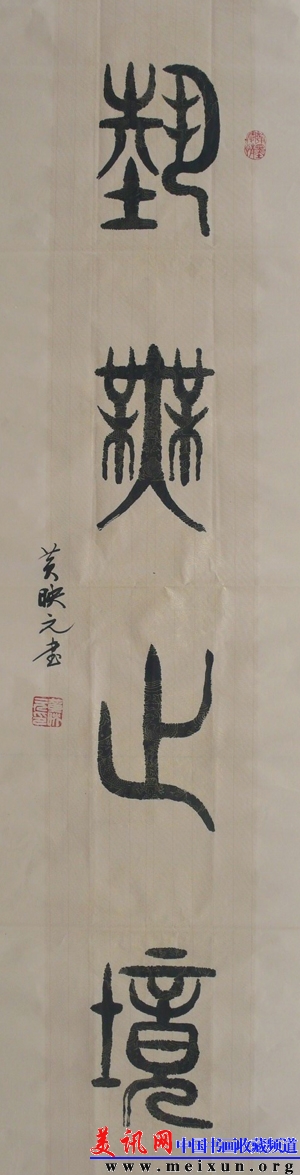 埶無止境
黄映元书
美讯网 中国书画收藏频道
www.meixun.org